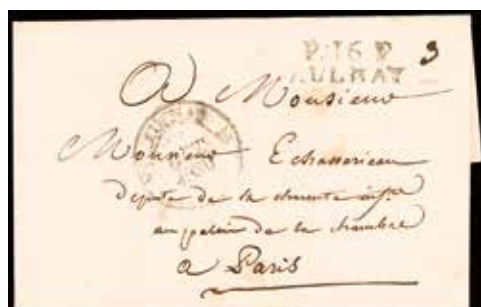 P.16.P
AULNAY
3
A Monsieur
Monsieur Echasseriau
député de la charente infre
au palais de la chambre
a Paris